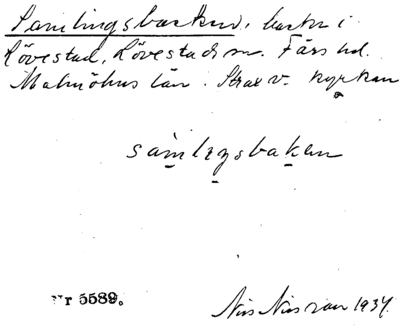 Samlingsbacken, backe i
Lövestad, Lövestads sn. Färs hd.
Malmöhus län. Strax v. kyrkan
samlingsbaken
Nr 5589.
Nils Nilsson 1934.